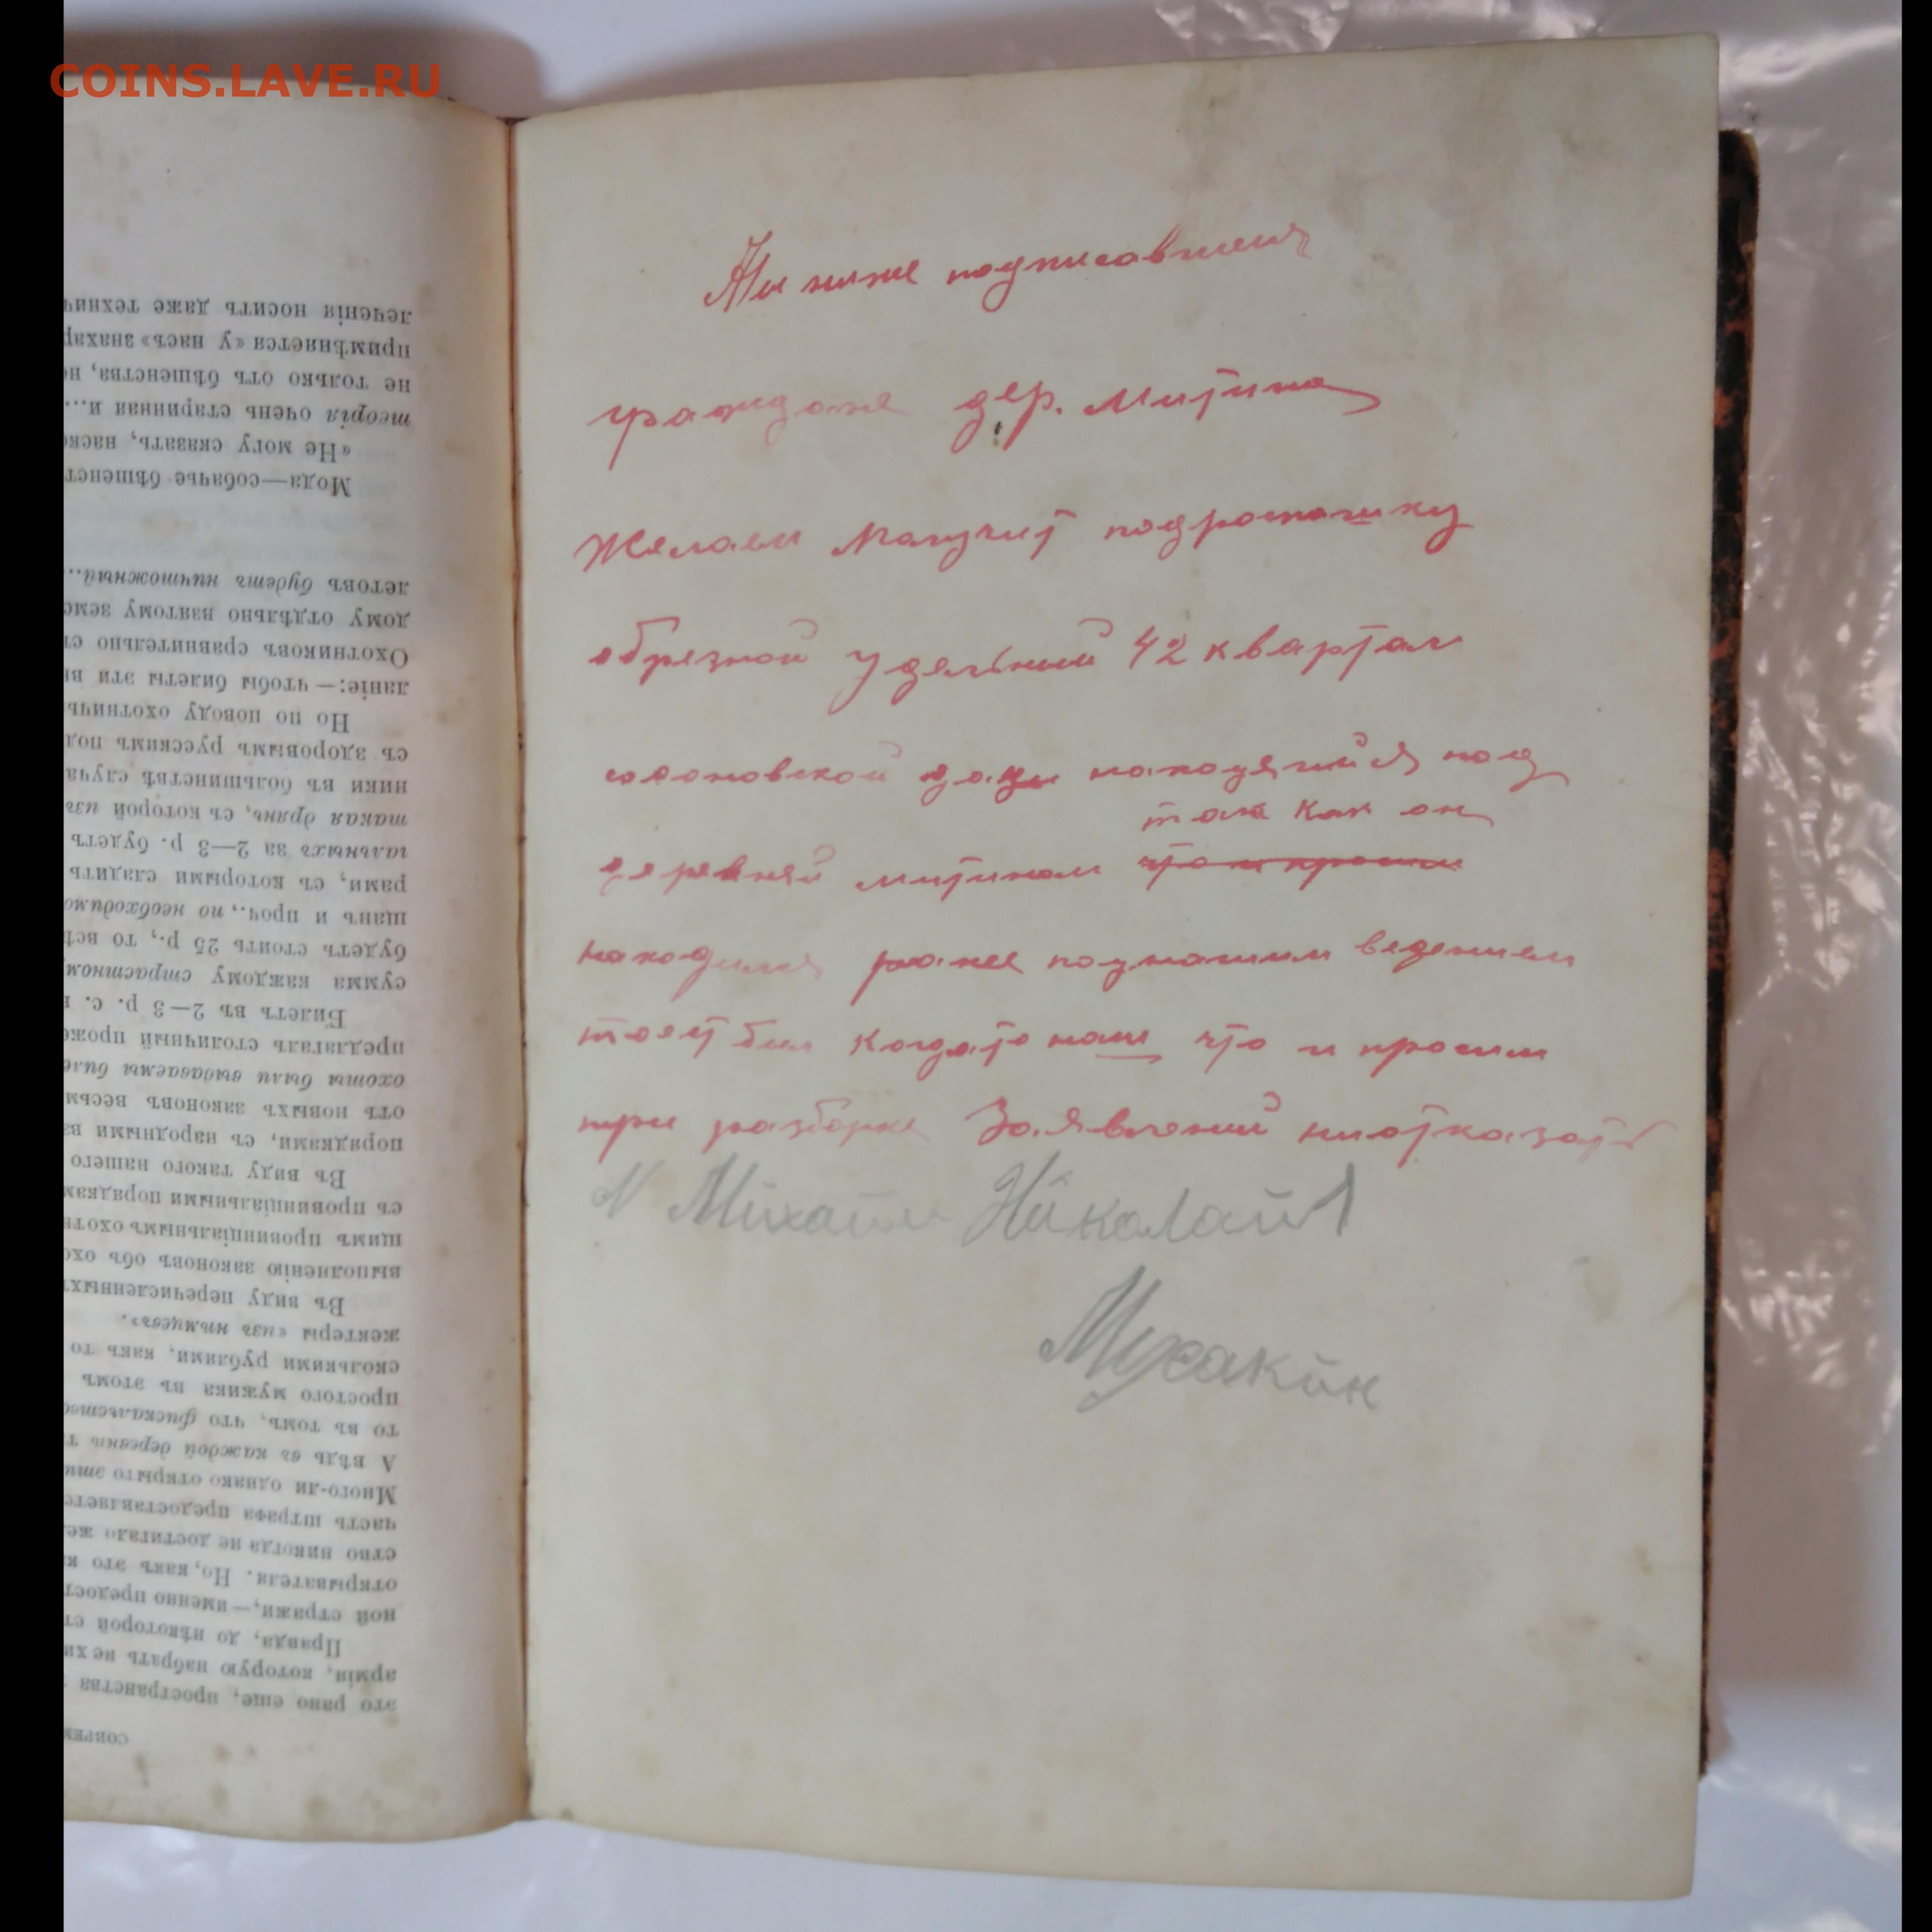 COINS.LAVE.RU
Мы ниже подписавшеия
граждане дер. Митина
Желаем Получит
обрезной удельный 42 квартал
дачи находящийся под
так как он
деревней митином что и просим
находился ранее поднашим ведением
тоест был когдато наш что и просим
при разборке Заявлений ниотказать
Михаил Николай
Мухакин
леченія носить даже технич
примѣняется «у насъ» знахар
не только отъ бѣшенства, н
теорія очень старинная и...
«Не могу сказать, наско
Мода—собачье бѣшенст
летовъ будетъ ничтожный...
дому отдѣльно взятому земс
Охотниковъ сравнительно с
даніе:—чтобы билеты эти в
Но по поводу охотничь
съ здоровымъ русскимъ под
ники въ большинствѣ случа
такая дрянь, съ которой изъ
гальныхъ за 2—3 р. будетъ
рами, съ которыми сладить
щанъ и проч., по необходимо
будетъ стоить 25 р., то всѣ
сумма каждому страстном
Билетъ въ 2—3 р. с.
предлагалъ столичный проже
охоты были выдаваемы биле
отъ новыхъ законовъ весьм
порядками, съ народными вз
Въ виду такого нашего
съ провинціальными порядкам
щимъ провинціальнымъ охотн
выполненію законовъ объ охо
Въ виду перечисленных
жектеры «изъ нѣмцевъ».
сколькими рублями, какъ то
простого мужика въ этомъ
то въ томъ, что фискальство
А вѣдь въ каждой деревнѣ
Много-ли однако открыто эти
часть штрафа предоставляется
ство никогда не достигало же
открывателя. Но, какъ это
ной стражи,—именно предост
Правда, до нѣкоторой ст
арміи, которую набрать не хи
это рано еще, пространства
СОВРЕМ